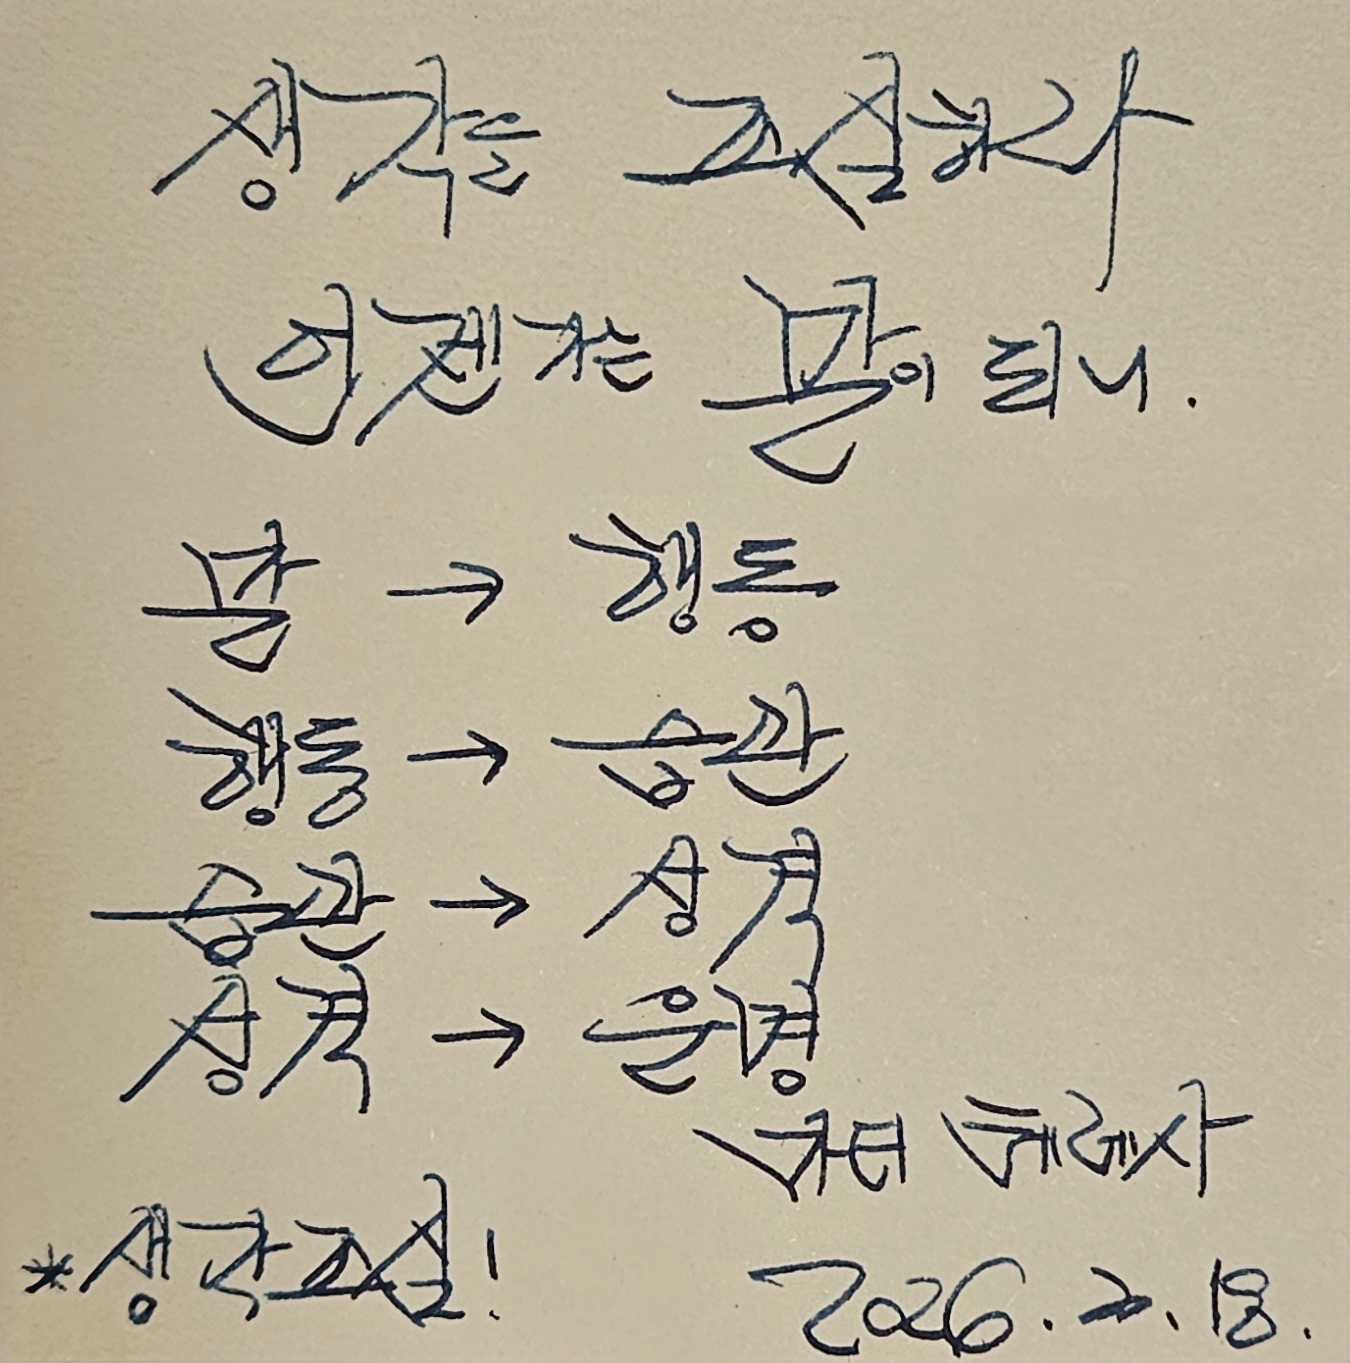 생각을 조절하라
언젠가는 말이 되니.
말 → 행동
행동 → 습관
습관 → 성격
성격 → 운명
마더 테레사
*생각조절!
2026. 2. 18.